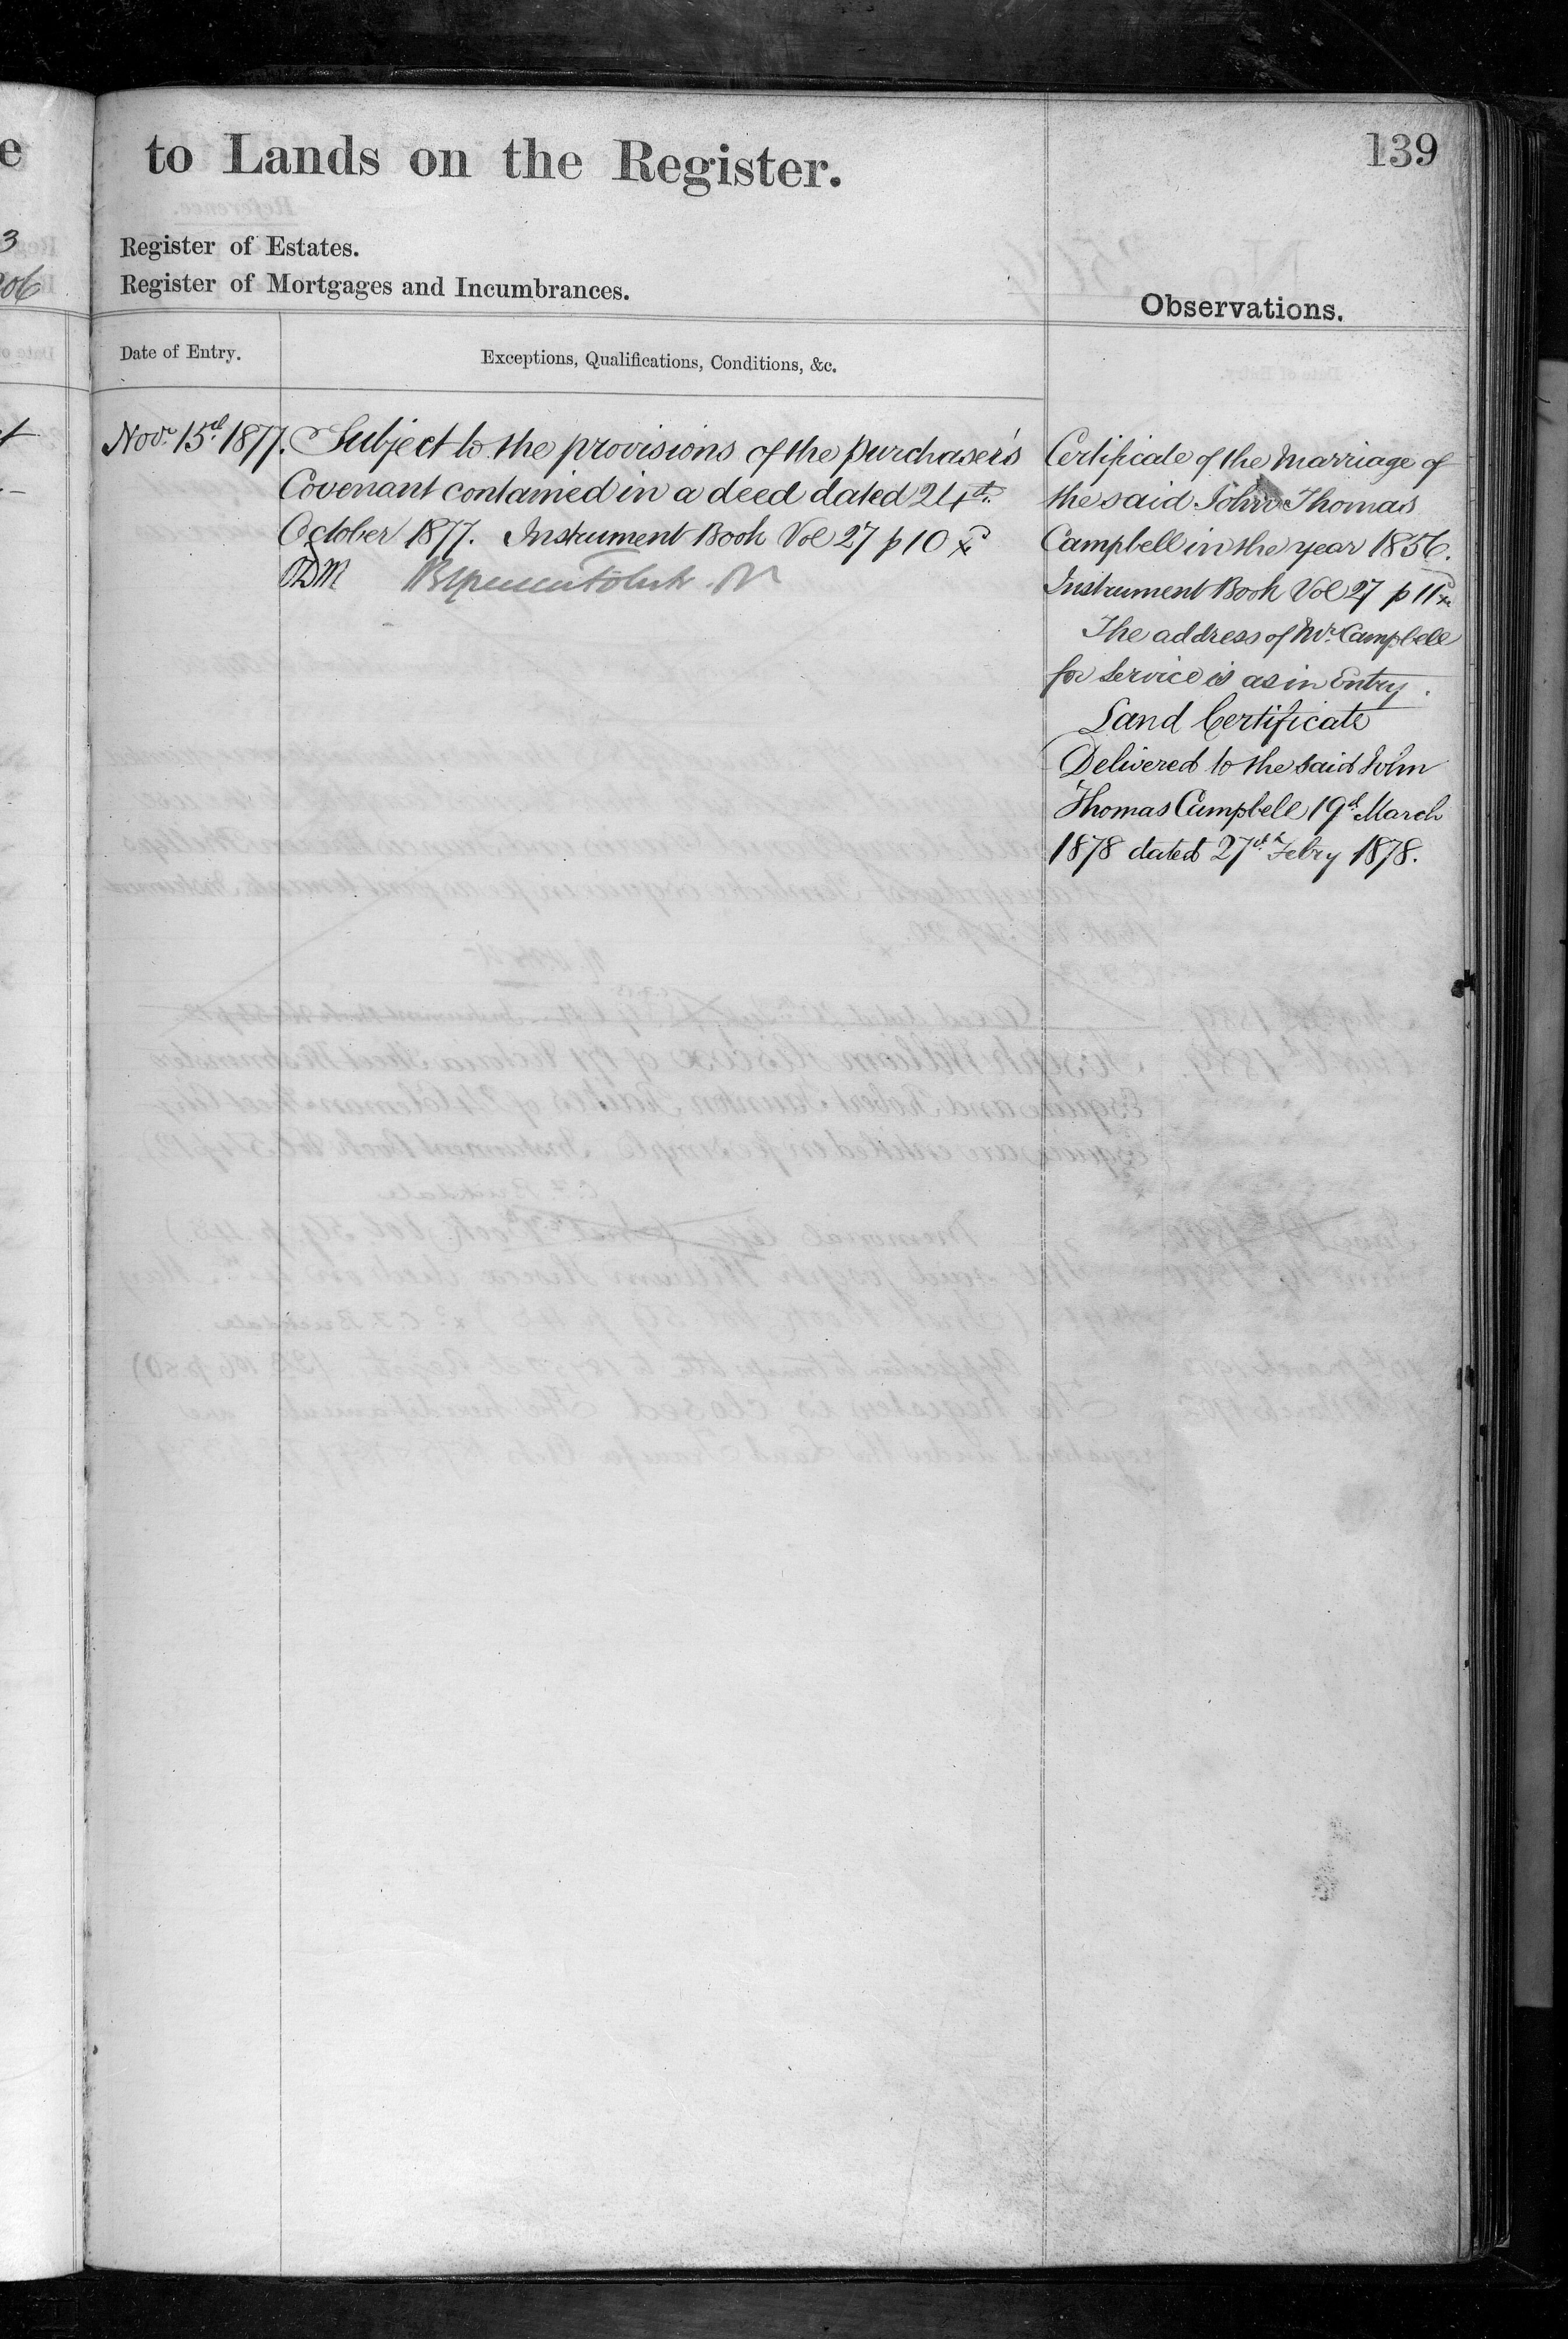 to Lands on the Register.
139
Register of Estates.
Register of Mortgages and Incumbrances.
Observations.
Date of Entry.
Exceptions, Qualifications, Conditions, &c.
Novr. 15th 1877.
Subject to the provisions of the purchaser's
Covenant contained in a deed dated 24th
October 1877. Instrument Book Vol 27 p 10
Certificate of the Marriage of
the said John Thomas
Campbell in the year 1856.
Instrument Book Vol 27 p 11
The address of Mr. Campbell
for Service is as in Entry.
Land Certificate
Delivered to the said John
Thomas Campbell 19th March
1878 dated 27th Febry 1878.